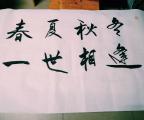 春夏秋冬
一世相逢